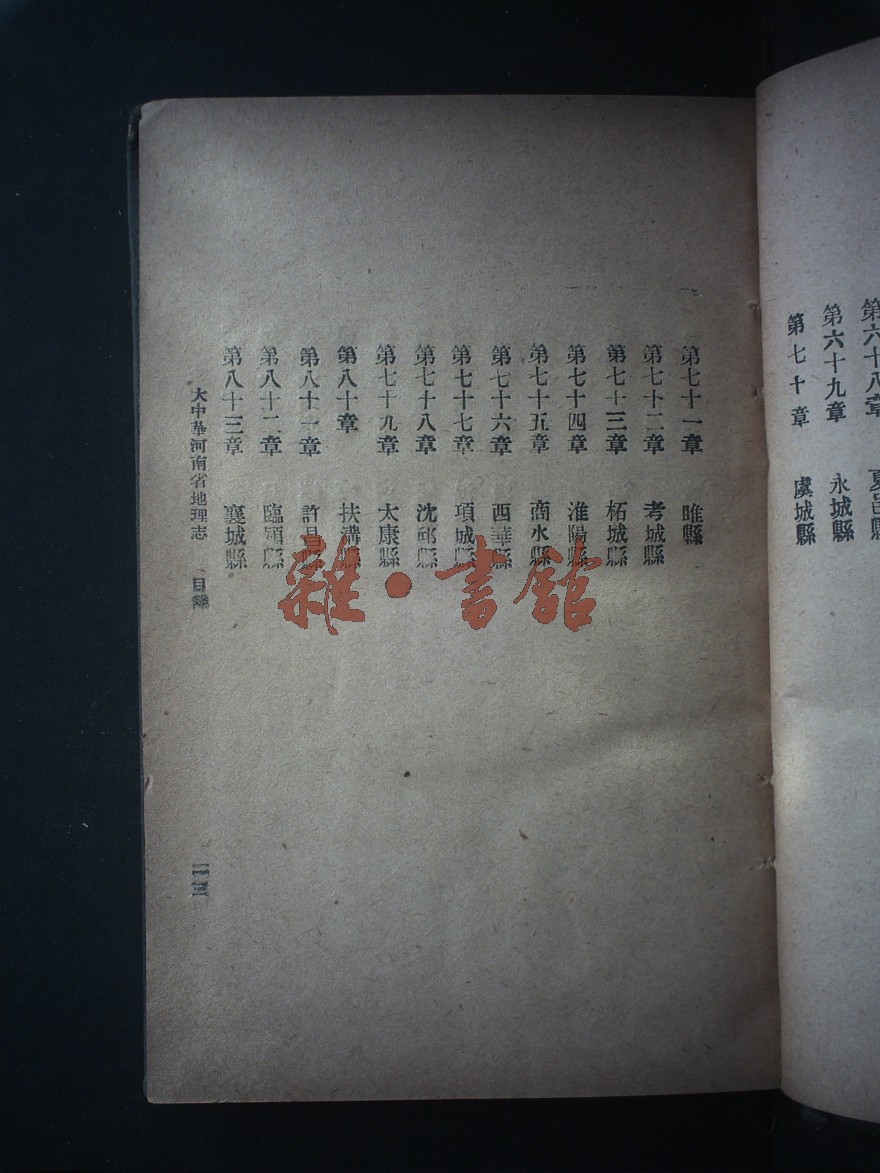 第六十八章　夏邑縣
第六十九章　永城縣
第七十章　虞城縣
第七十一章　睢縣
第七十二章　考城縣
第七十三章　柘城縣
第七十四章　淮陽縣
第七十五章　商水縣
第七十六章　西華縣
第七十七章　項城縣
第七十八章　沈邱縣
第七十九章　太康縣
第八十章　扶溝縣
第八十一章　許昌縣
第八十二章　臨潁縣
第八十三章　襄城縣
大中華河南省地理志　目錄
雜·書館